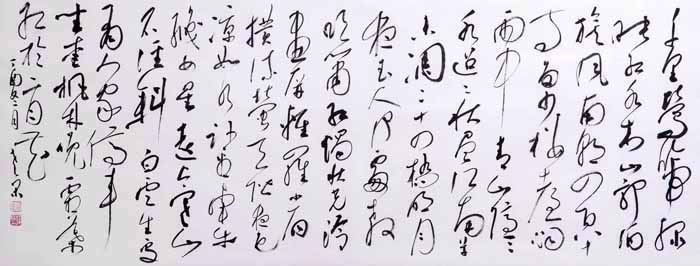 千里莺啼绿
映红水村山郭酒
旗风南朝四百八十
寺多少楼台烟
雨中 青山隐隐
水迢迢秋尽江南草
未凋二十四桥明月
夜玉人何处教
吹箫 红烛秋光冷
画屏轻罗小扇
扑流萤天阶夜色
凉如水 卧看牵牛
织女星 远上寒山
石径斜 白云生处
有人家停车
坐爱枫林晚 霜叶
红于二月花
丁酉年二月